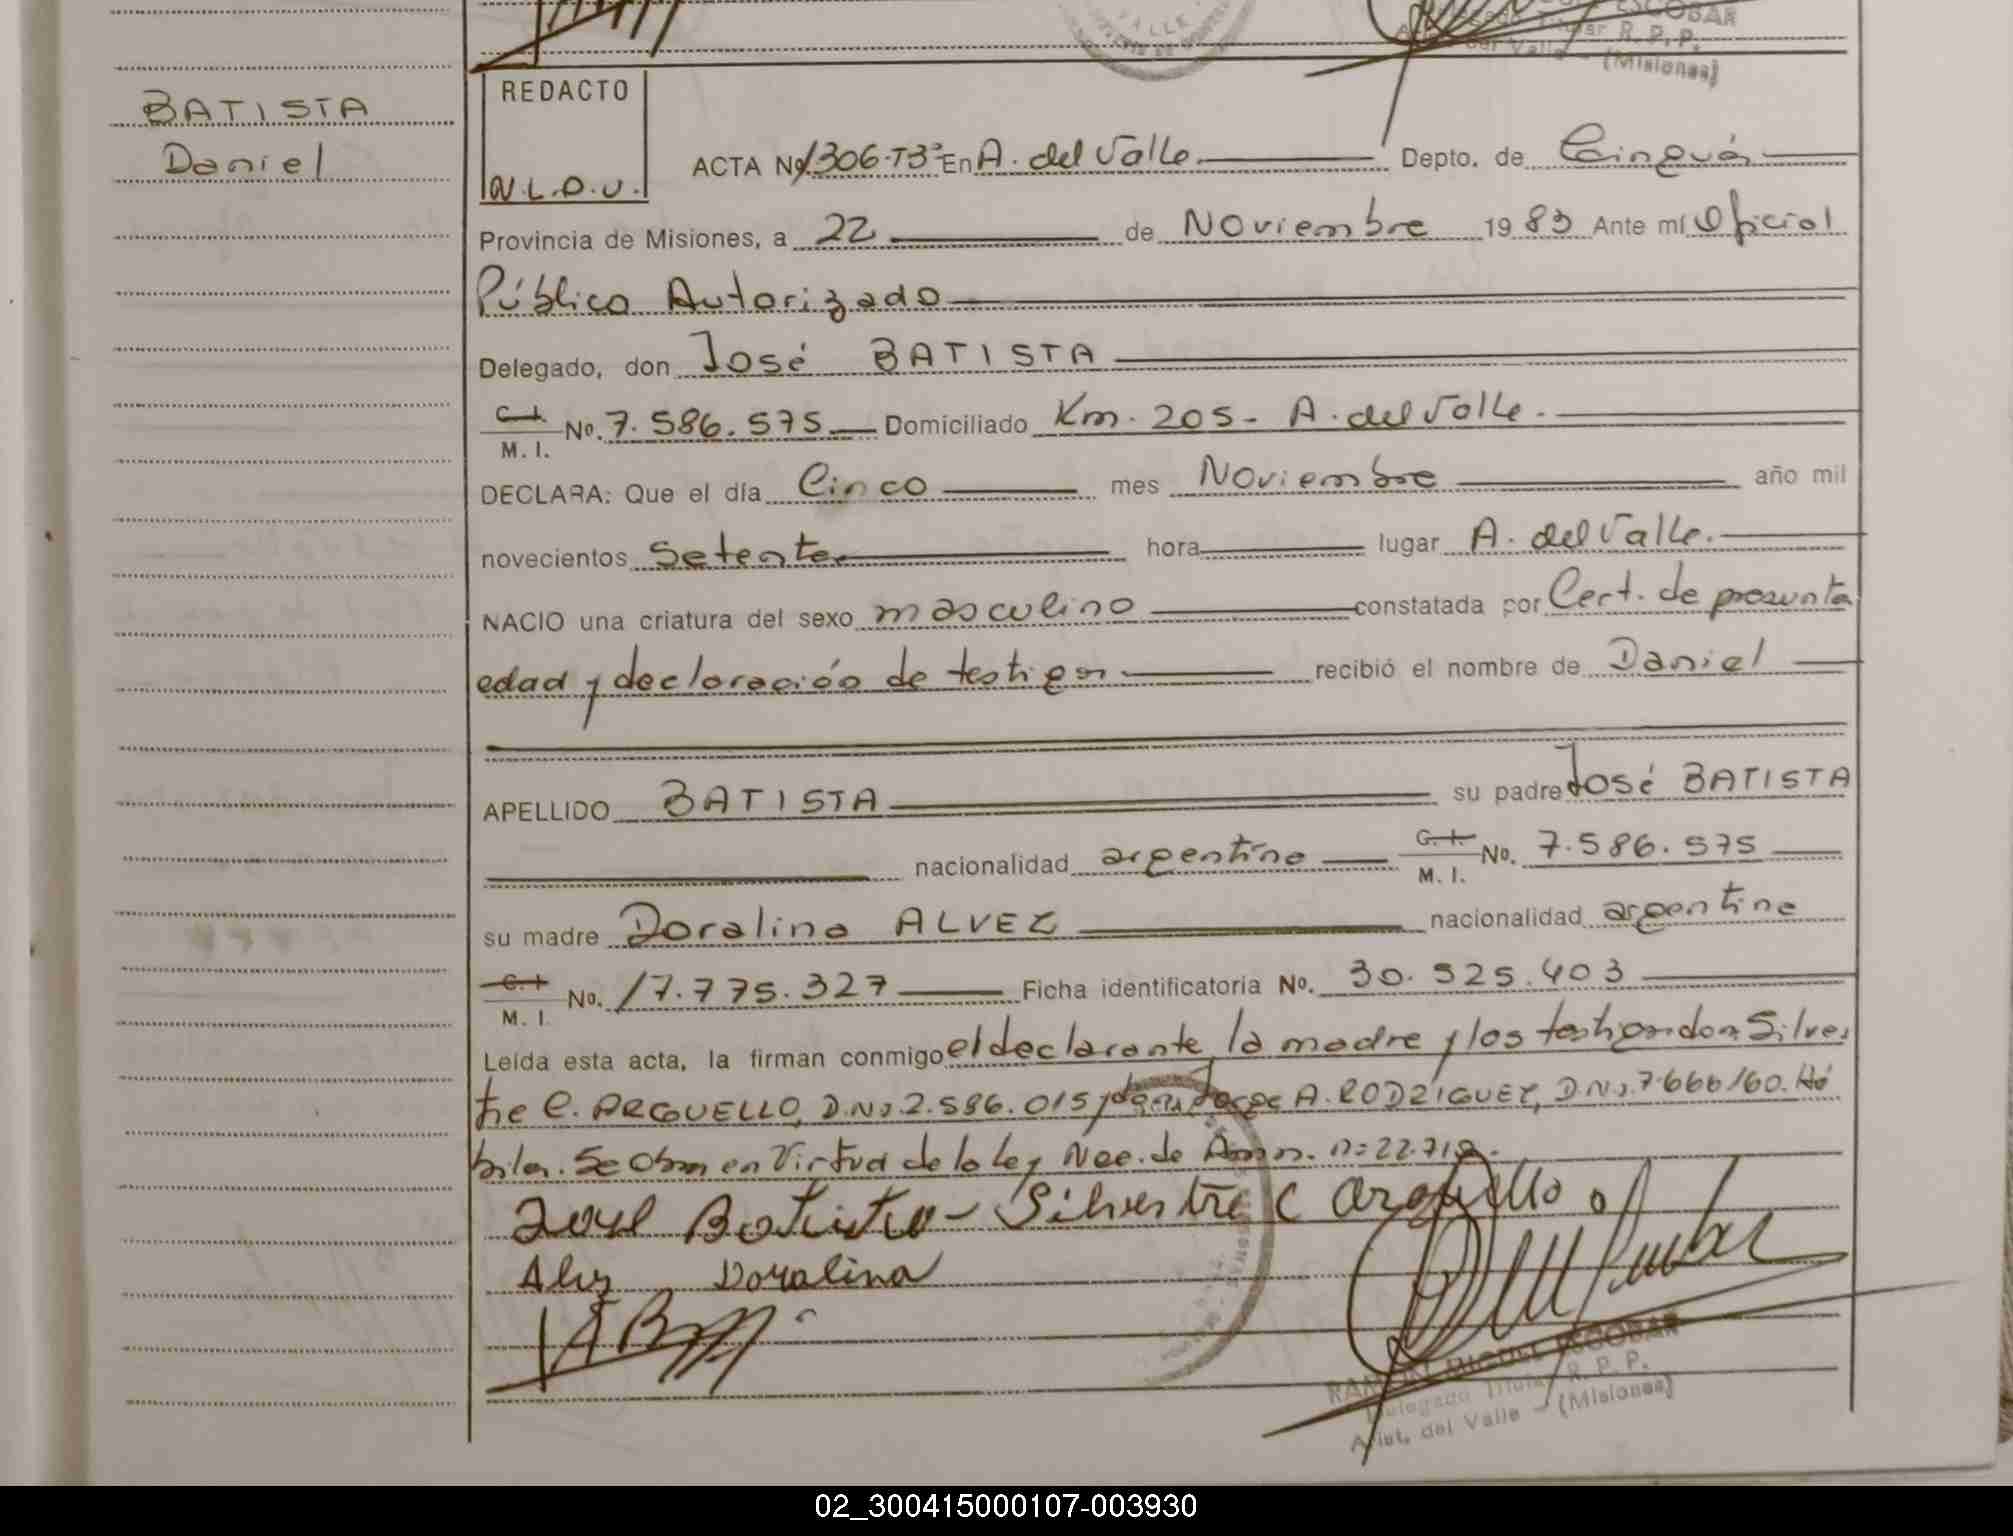 ESCOBAR
R. P. P.
(Misiones)
VALLE
BATISTA
Daniel
REDACTO
N.L.D.U.
ACTA Nº 1306-T3º En A. del Valle Depto. de Cainguás
Provincia de Misiones, a 22 de Noviembre 1983 Ante mí Oficial
Público Autorizado
Delegado, don José BATISTA
C. I.
M. I. No. 7.586.575 Domiciliado Km. 205 - A. del Valle.
DECLARA: Que el día Cinco mes Noviembre año mil
novecientos Setenta hora lugar A. del Valle.
NACIO una criatura del sexo masculino constatada por Cert. de presunta
edad y declaración de testigos recibió el nombre de Daniel
APELLIDO BATISTA su padre José BATISTA
nacionalidad argentino C. I. M. I. No. 7.586.575
su madre Doralina ALVEZ nacionalidad argentina
C. I.
M. I. No. 17.775.327 Ficha identificatoria No. 30.525.403
Leída esta acta, la firman conmigo el declarante, la madre y los testigos don Silves
tre C. ARGUELLO, D.N.I. 2.586.015 y don Jorge A. RODRIGUEZ, D.N.I. 7.666160. Há
biles. Se Obra en Virtud de la Ley Nac. de Amn. nº 22.
José Batista - Silvestre C Arguello
Alvez Doralina
RAMON MIGUEL ESCOBAR
Delegado Titular R. P. P.
Arist. del Valle - (Misiones)
02_300415000107-003930